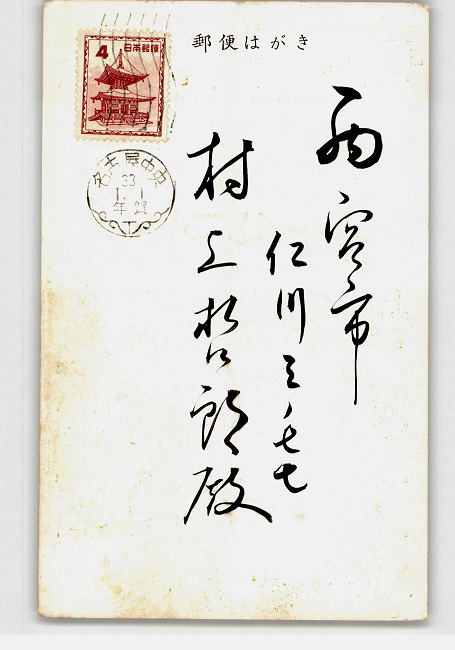 郵便はがき
4 日本郵便
名古屋中央
33
1.1
年賀
西宮市
仁川三ノ七七
村上哲郎殿